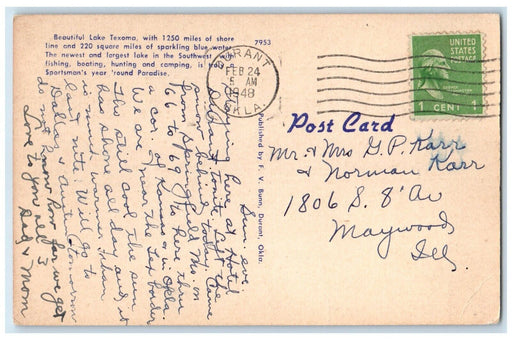 Beautiful Lake Texoma, with 1250 miles of shore
line and 220 square miles of sparkling blue water.
The newest and largest lake in the Southwest with
fishing, boating, hunting and camping, is truly a
Sportsman's year 'round Paradise.
7953
DURANT
FEB 24
5 AM
1948
OKLA.
UNITED
STATES
POSTAGE
1 CENT 1
Post Card
Mr. & Mrs G. P. Karr
& Norman Karr
1806 S. 8' Av
Maywood
Ill.
Published by F. V. Bunn, Durant, Okla.
Sun. eve
here at Hotel
Durant tonite. Left the
snow behind today. Came
from Springfield Mo on
66 to 69 to here thru
a cor. of Kansas on in Okla.
We are near the Tex border
Tho still cool the sun
has shone all day and it
is much warmer than
last nite. Will go to
Dallas & Austin tomorrow
do not know how far we get
Love to you all 3
Dad & Mom